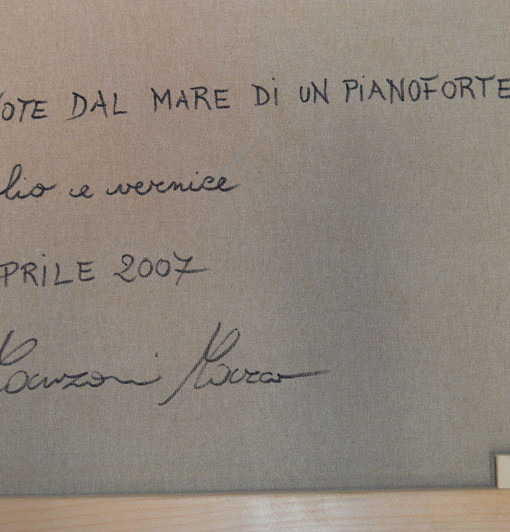 OTE DAL MARE DI UN PIANOFORTE
lio e vernice
PRILE 2007
Manzoni Mara